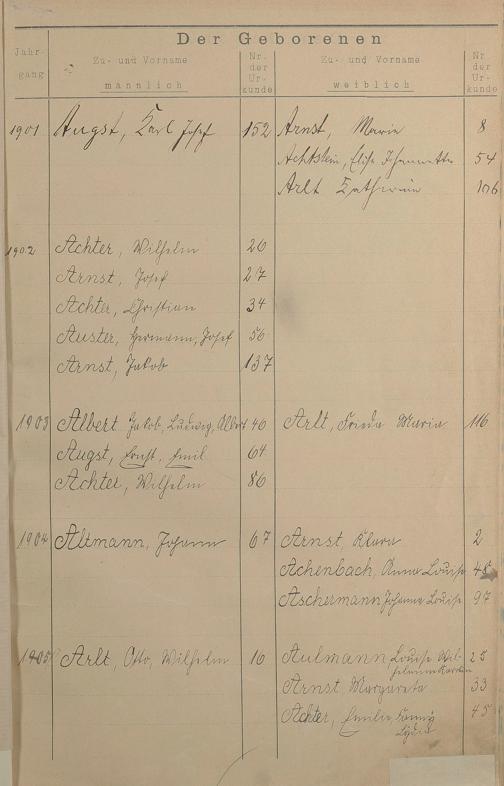 Der Geborenen
Jahrgang Zu- und Vorname männlich Nr. der Urkunde Zu- und Vorname weiblich Nr. der Urkunde
1901 Augst, Karl Josef 152 Arnst, Maria 8
Achtstein, Elise Johannette 54
Arlt Katharina 106
1902 Achter, Wilhelm 26
Arnst, Josef 27
Achter, Christian 34
Auster, Hermann, Josef 56
Arnst, Jakob 137
1903 Albert Jakob, Ludwig, Albert 40 Arlt, Frieda Maria 116
Augst, Ernst, Emil 64
Achter, Wilhelm 86
1904 Altmann, Johann 67 Arnst, Klara 2
Achenbach, Anna Louise 45
Aschermann Johanna Louise 97
1905 Arlt, Otto, Wilhelm 10 Aulmann, Louise Wil- 25
helmine
Arnst, Margareta 33
Achter, Emilie, Fanny 45
Lydia